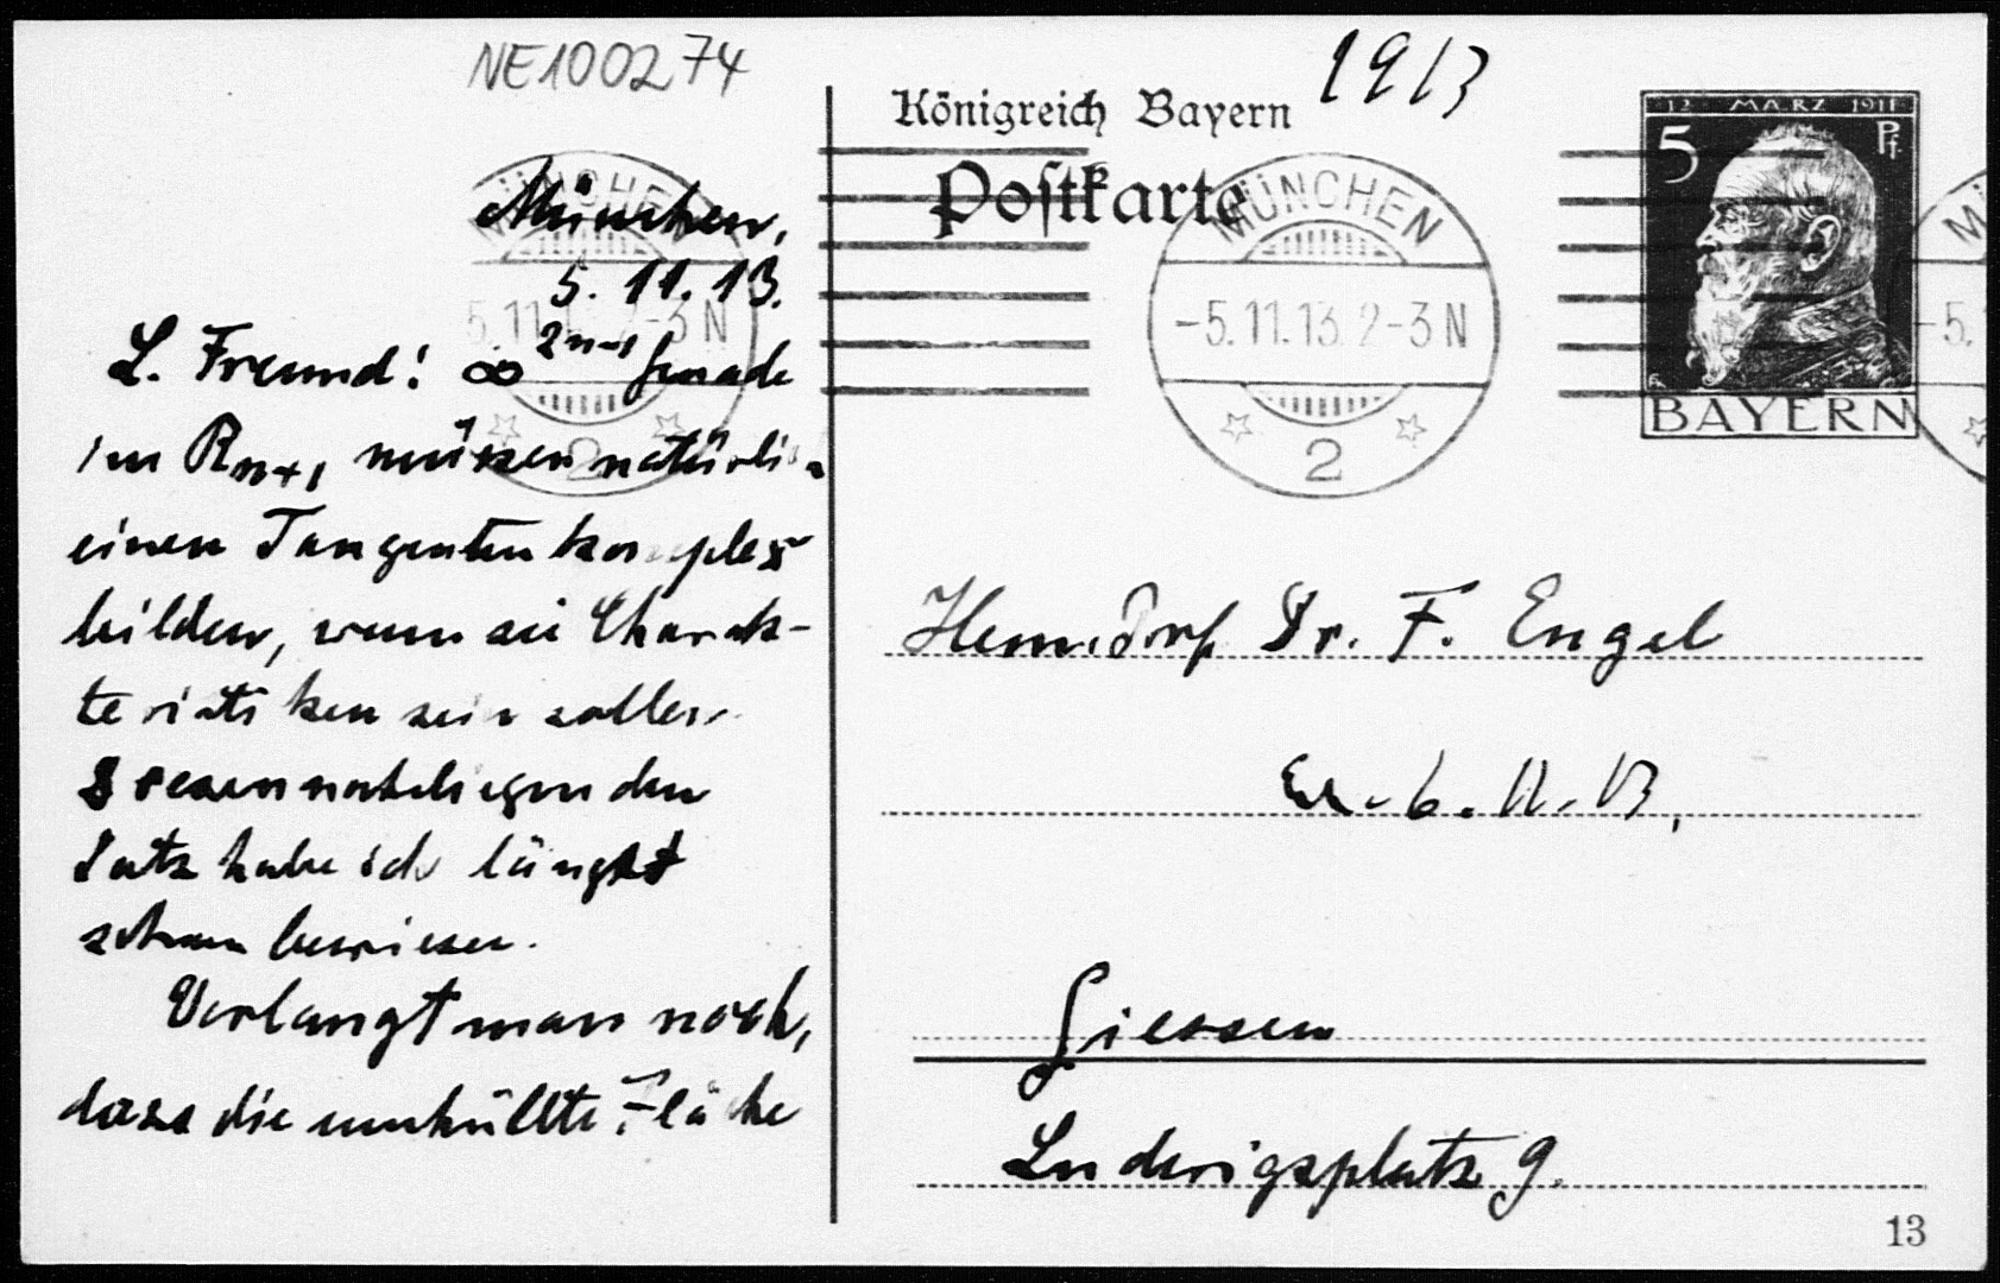 NE100274
1913
Königreich Bayern
Postkarte
12 MÄRZ 1911
5 Pf.
BAYERN
MÜNCHEN
-5.11.13. 2-3 N
2
MÜNCHEN
5.11.1 2-3 N
2
MÜ
-5.
München,
5. 11. 13.
L. Freund! ∞ 2n-1 Gerade
im Rn+1 müssen natürli
einen Tangentenkomplex
bilden, wenn sie Charak-
teristiken sein sollen
Diesen naheliegenden
Satz habe ich längst
schon bewiesen.
Verlangt man noch,
dass die umhüllte Fläche
Herrn Prof Dr. F. Engel
6. 11. 13,
Giessen
Ludwigsplatz 9.
13